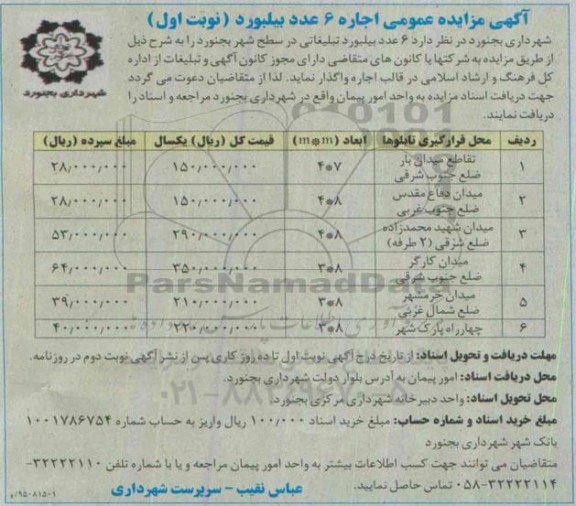 آگهی مزایده عمومی اجاره ۶ عدد بیلبورد (نوبت اول)
شهرداری بجنورد در نظر دارد ۶ عدد بیلبورد تبلیغاتی در سطح شهر بجنورد را به شرح ذیل
از طریق مزایده به شرکتها یا کانون های متقاضی دارای مجوز کانون آگهی و تبلیغات از اداره
کل فرهنگ و ارشاد اسلامی در قالب اجاره واگذار نماید. لذا از متقاضیان دعوت می گردد
جهت دریافت اسناد مزایده به واحد امور پیمان واقع در شهرداری بجنورد مراجعه و اسناد را
دریافت نمایند.
شهرداری بجنورد
ردیف محل قرارگیری تابلوها ابعاد (m*m) قیمت کل (ریال) یکسال مبلغ سپرده (ریال)
۱ تقاطع میدان بار ضلع جنوب شرقی ۴*۷ ۱۵۰٫۰۰۰٫۰۰۰ ۲۸٫۰۰۰٫۰۰۰
۲ میدان دفاع مقدس ضلع جنوب غربی ۴*۸ ۱۵۰٫۰۰۰٫۰۰۰ ۲۸٫۰۰۰٫۰۰۰
۳ میدان شهید محمدزاده ضلع شرقی (۲ طرفه) ۴*۸ ۲۹۰٫۰۰۰٫۰۰۰ ۵۳٫۰۰۰٫۰۰۰
۴ میدان کارگر ضلع جنوب شرقی ۳*۸ ۳۵۰٫۰۰۰٫۰۰۰ ۶۴٫۰۰۰٫۰۰۰
۵ میدان خرمشهر ضلع شمال غربی ۳*۸ ۲۱۰٫۰۰۰٫۰۰۰ ۳۹٫۰۰۰٫۰۰۰
۶ چهارراه پارک شهر ۳*۸ ۲۲۰٫۰۰۰٫۰۰۰ ۴۰٫۰۰۰٫۰۰۰
ParsNamadData
مهلت دریافت و تحویل اسناد: از تاریخ درج آگهی نوبت اول تا ده روز کاری پس از نشر آگهی نوبت دوم در روزنامه.
محل دریافت اسناد: امور پیمان به آدرس بلوار دولت شهرداری بجنورد.
محل تحویل اسناد: واحد دبیرخانه شهرداری مرکزی بجنورد.
مبلغ خرید اسناد و شماره حساب: مبلغ خرید اسناد ۱۰۰٫۰۰۰ ریال واریز به حساب شماره ۱۰۰۱۷۸۶۷۵۴
بانک شهر شهرداری بجنورد
متقاضیان می توانند جهت کسب اطلاعات بیشتر به واحد امور پیمان مراجعه و یا با شماره تلفن ۳۲۲۲۲۱۱۰-
۰۵۸-۳۲۲۲۲۱۱۴ تماس حاصل نمایید.
عباس نقیب - سرپرست شهرداری
۹۵۰۸۱۵۰۱/و